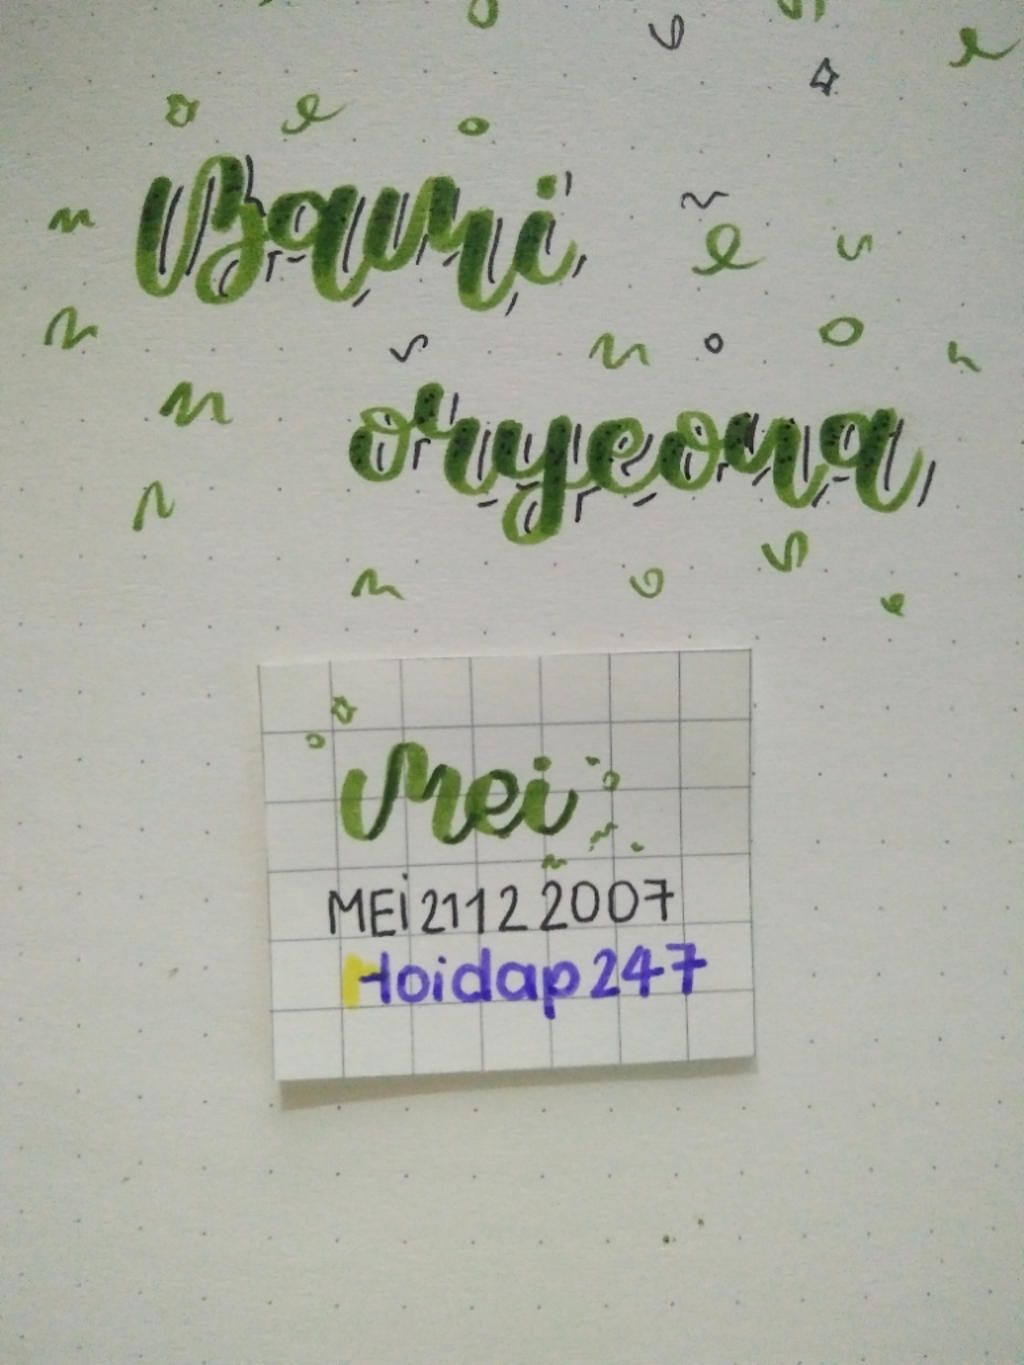 Bami
oryeona
Mei
MEi21122007
Hoidap247